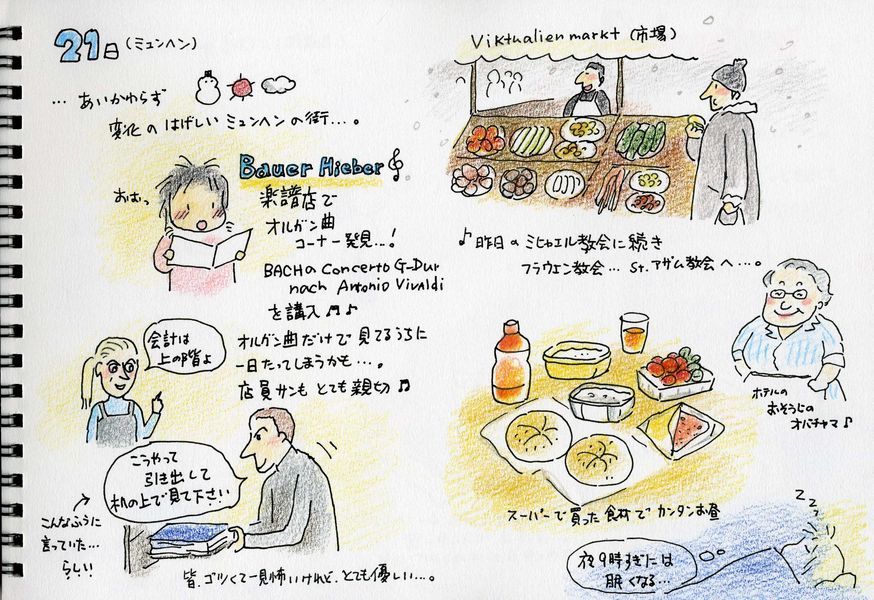 21日(ミュンヘン)
… あいかわらず
変化の はげしい ミュンヘン の街…。
おおっ
Bauer Hieber
楽譜店で
オルガン曲
コーナー発見…!
BACHの Concerto G-Dur
nach Antonio Vivaldi
を購入♬♪
オルガン曲だけで 見てるうちに
一日たってしまうかも…。
店員サンも とても親切♬
会計は
上の階よ
こうやって
引き出して
机の上で見て下さい!
こんなふうに
言っていた…
らしい!
皆、ゴツくて一見怖いけれど、とても優しい…。
Viktualienmarkt (市場)
♪昨日の ミヒャエル教会に続き
フラウエン教会… St.アザム教会へ…。
ホテルの
おそうじの
オバチャマ♪
スーパーで買った食材で カンタンお昼
zzz
夜9時すぎには
眠くなる…